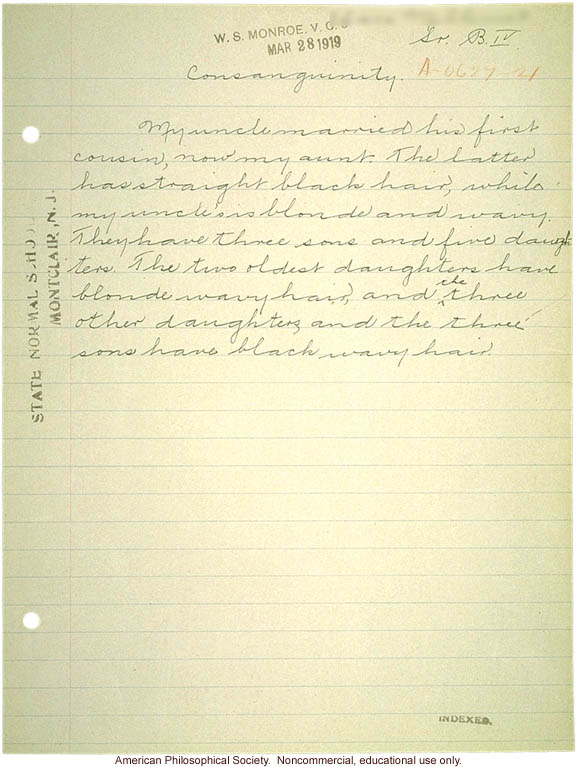 W. S. MONROE. V. C.
MAR 28 1919
Sr. B. IV.
Consanguinity.
A-0627-21
My uncle married his first
cousin, now my aunt. The latter
has straight black hair, while
my uncle's is blonde and wavy.
They have three sons and five daugh-
ters. The two oldest daughters have
blonde wavy hair, and the three
other daughters, and the three
sons have black wavy hair.
STATE NORMAL SCHOOL
MONTCLAIR, N. J.
INDEXED.
American Philosophical Society. Noncommercial, educational use only.